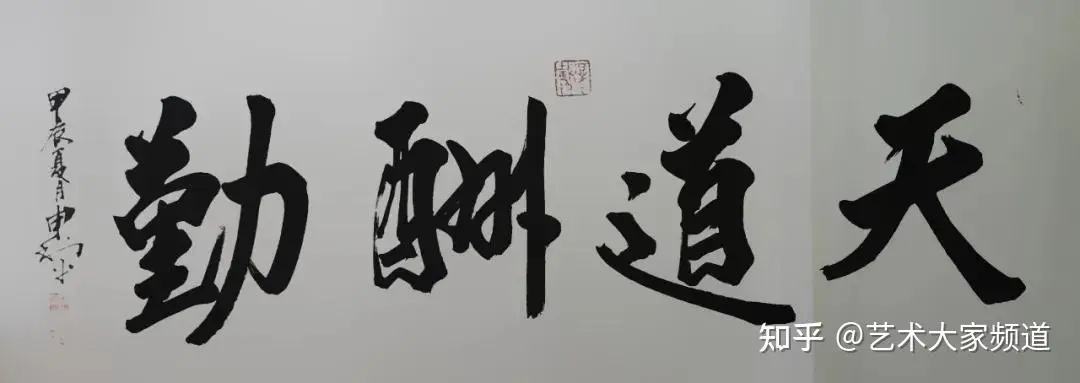 天道酬勤
甲辰夏月
知乎 @艺术大家频道